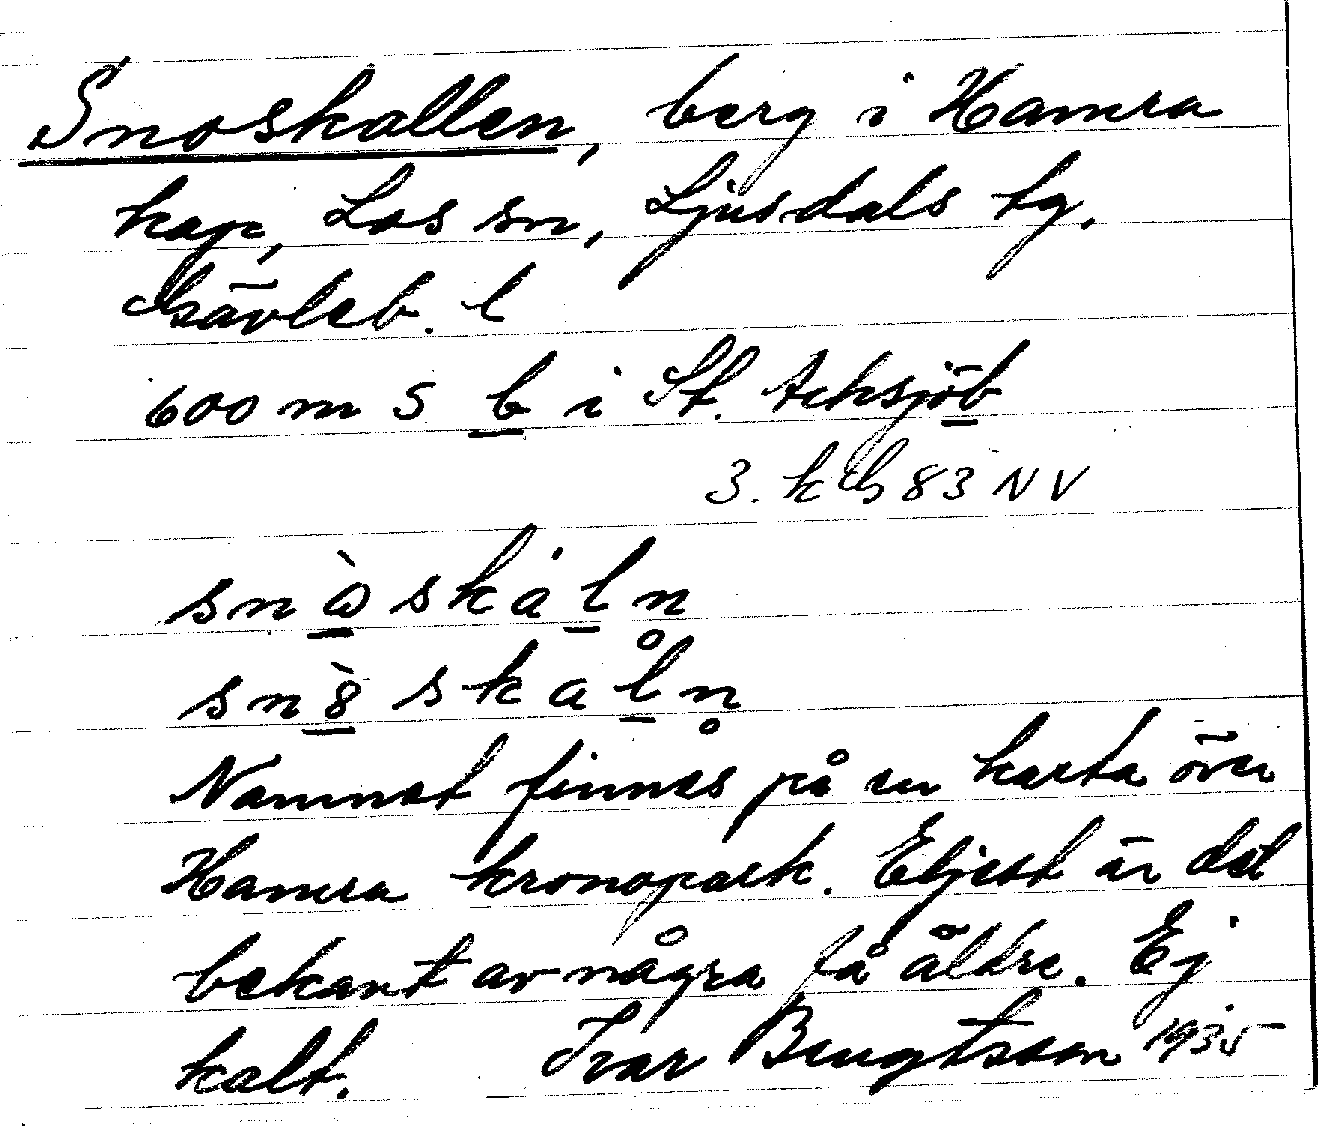 Snoskallen, berg i Hamra
kap, Los sn, Ljusdals tg,
Gävleb. l
600 m S b i St. Acksjöb
3. k Gb 83 NV
Namnet finnes på en karta över
Hamra kronopark. Eljest är det
bekant av några få äldre. Ej
kalt. Ivar Bengtsson 1935